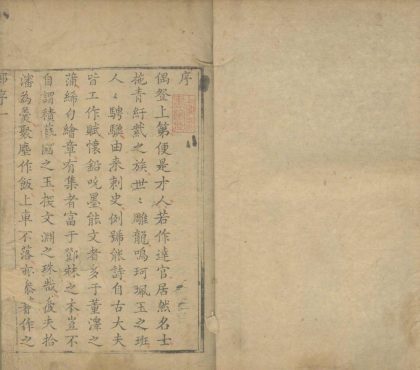 序
偶登上第便是才人若作達官居然名士
拖青紆紫之族世〻雕龍鳴珂珮玉之班
人〻騁驥由来刺史例號能詩自古大夫
皆工作賦懷鉛吮墨能文者多于董澤之
蒲絺句繪章有集者富于鄧林之木豈不
自謂積崑園之玉探文淵之珠哉後夫拾
瀋為羹聚塵作飯上車不落亦
作之
序一